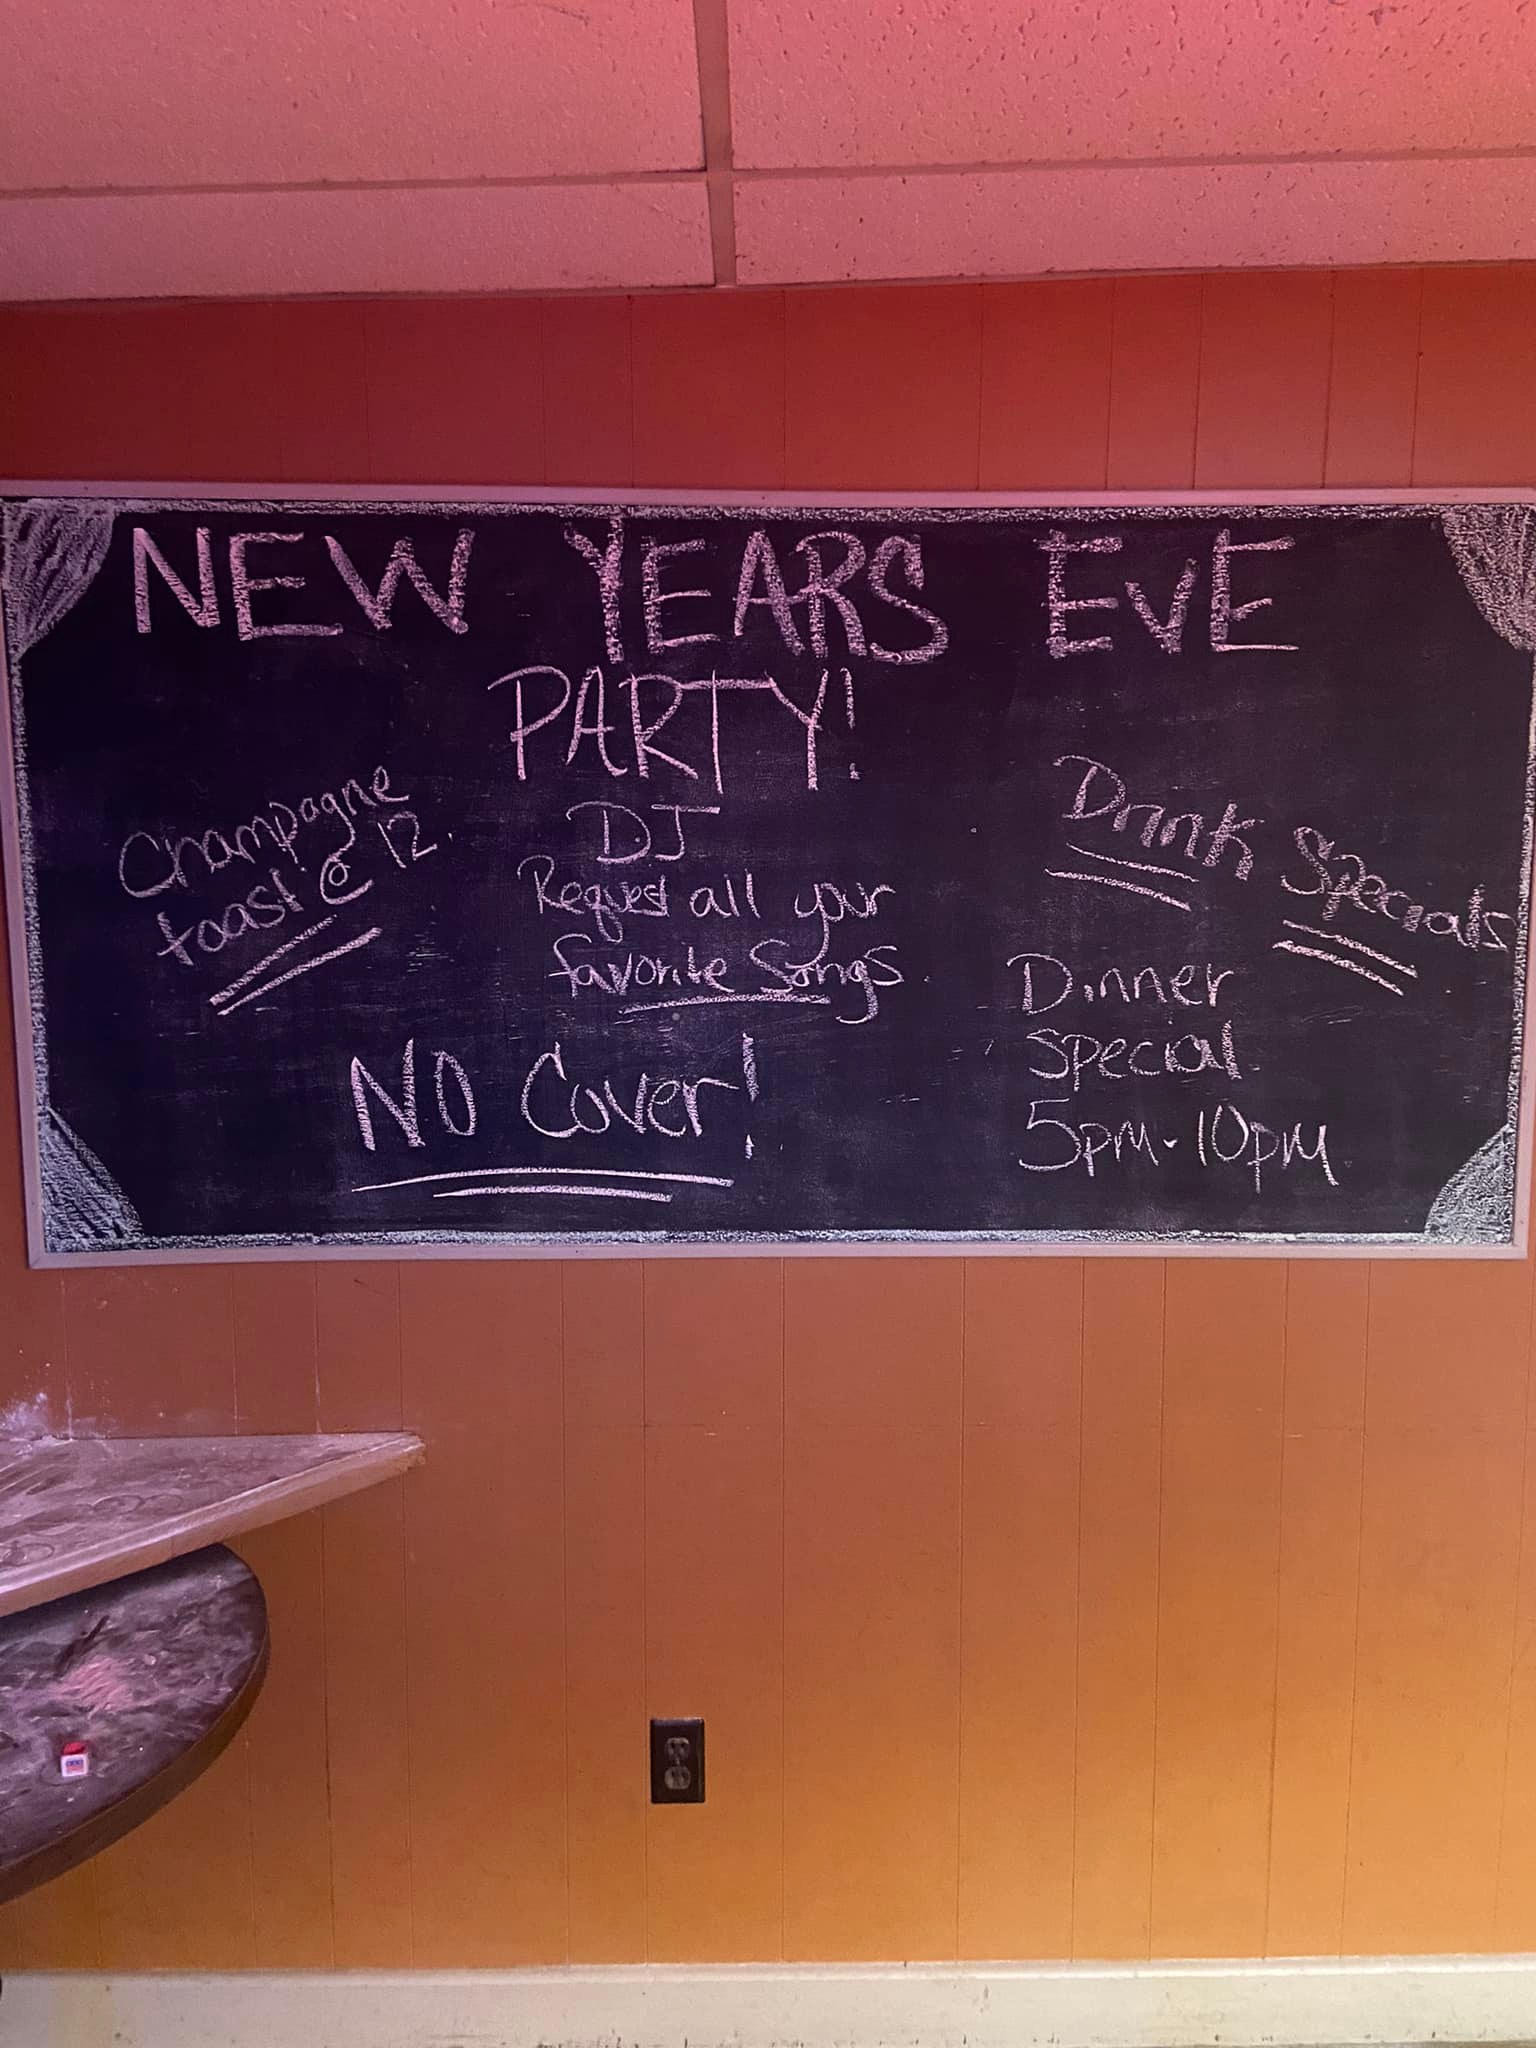 NEW YEARS EVE
PARTY!
Champagne
toast @ 12.
DJ
Request all your
favorite Songs.
NO Cover!
Drink Specials
Dinner
Special
5pm-10pm